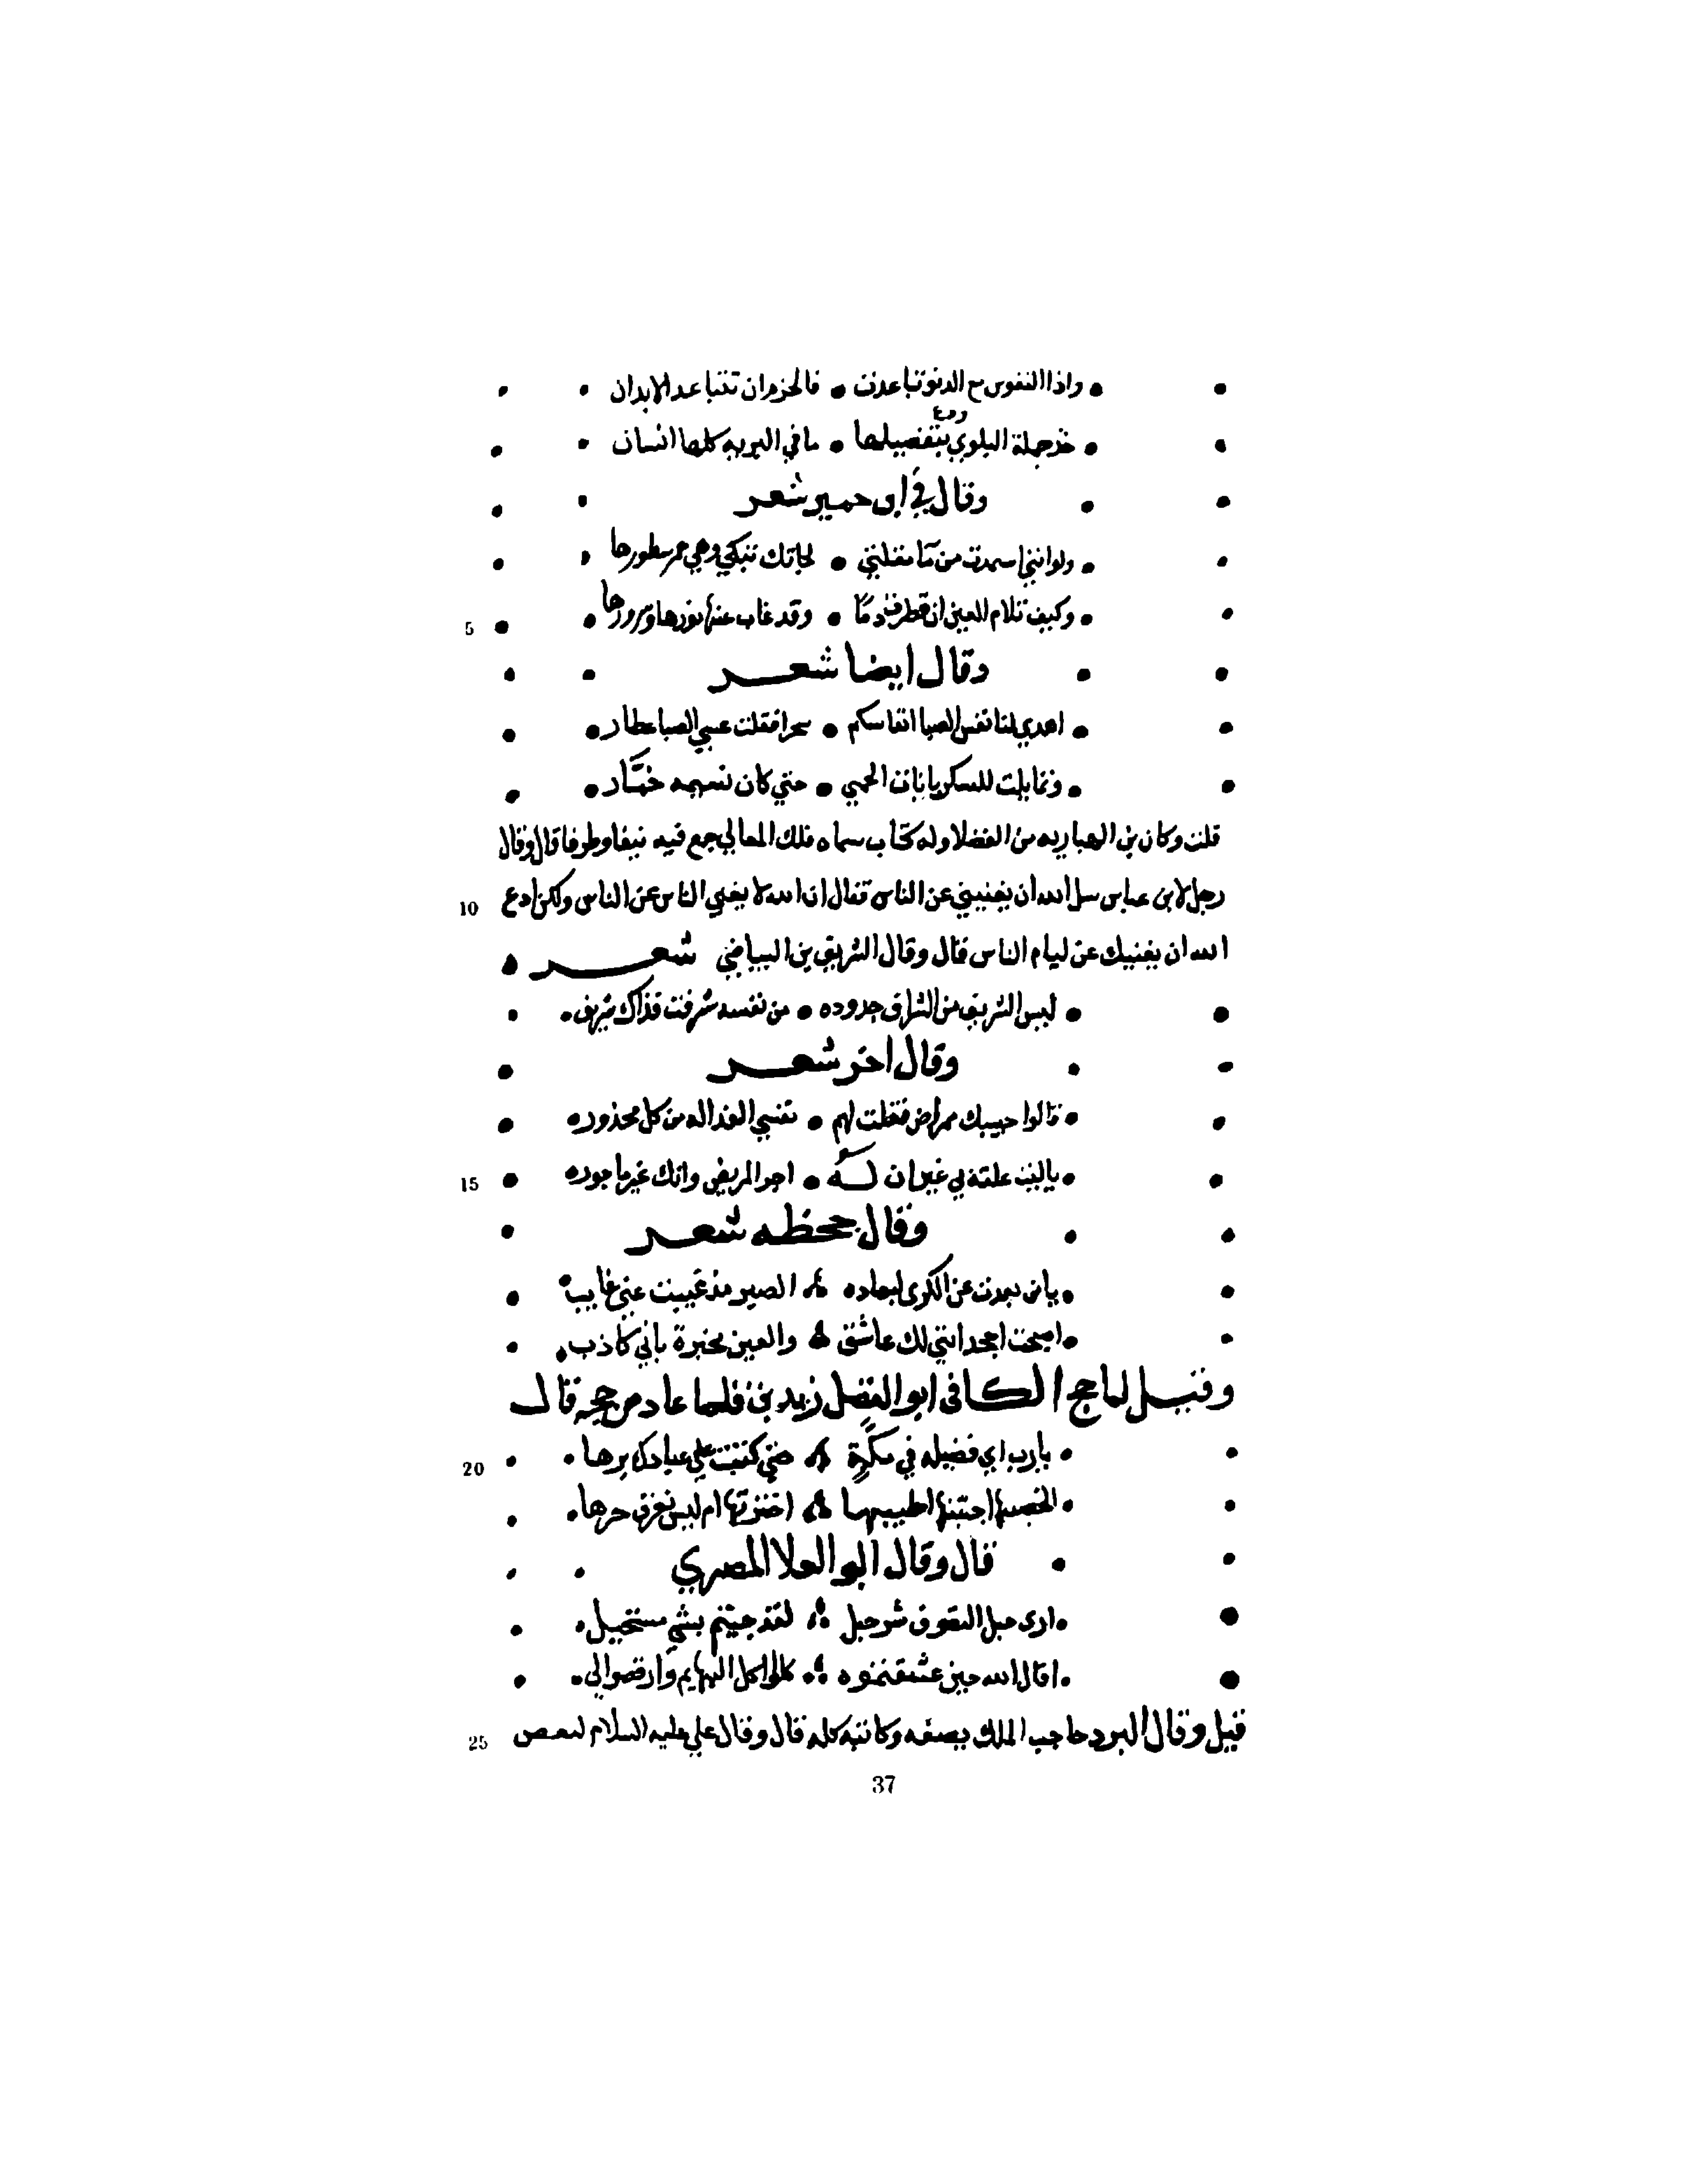 واذا النفوس مع الدنو تباعدت • فالحزم ان تتباعد الابدان
خذ جملة البلوي ودع تفصيلها • ما في البريه كلها انسان
وقال في ابن حمير شعر
ولو انني استمديت من ما مقلتي • لجاتك تبكي وهي حمر سطورها
وكيف تلام العين ان قطرت دمًا • وقد غاب عنها نورها وسرورها
5
وقال ايضا شعر
اهدي لنا نفس الصبا انفاسكم • سحرا فقلت عسي الصبا عطار
وتمايلت للسكر يا بانات الحمي • حتي كان نسيمه خمَّار
قلت وكان بن الهباريه من الفضلا وله كتاب سماه فلك المعالي جمع فيه نتفا وطرفا قال وقال
رجل لابن عباس سل الله ان يغنيني عن الناس فقال ان الله لا يغني الناس عن الناس ولكن ادع
10
الله ان يغنيك عن ليام الناس قال وقال الشريف بن البياضي شعر
ليس الشريف من الشراف جدوده • من نفسه شرفت فذاك شريف
وقال اخر شعر
قالوا حبيبك ممراض فقلت لهم • نفسي الفدا له من كل محذوره
يا ليت علته بي غير ان له • اجر المريض وانك غير ماجوره
15
وقال جحظه شعر
يا من بعدت عن الكرى لبعاده الصبر مذ غيبت عني غايب
اصبحت اجحد انني لك عاشق والعين مخبرة باني كاذب
وقيل لما حج الكافى ابو الفضل زيد فلما عاد من حجه قال
يا رب اي فضيله في مكة حتي كتبت علي عبادك برها
20
اطيبها ام ليس تعرف حرها
قال وقال ابو العلا المصري
ارى حبل التصوف شر حبل لقد جيتم بشي مستحيل
اقال الله حين عشقتموه كلوا اكل البهايم وارقصوا لي
قيل وقال المبرد حاجب الملك نصفه وكاتبه كله قال وقال علي عليه السلام لبعض
25
37